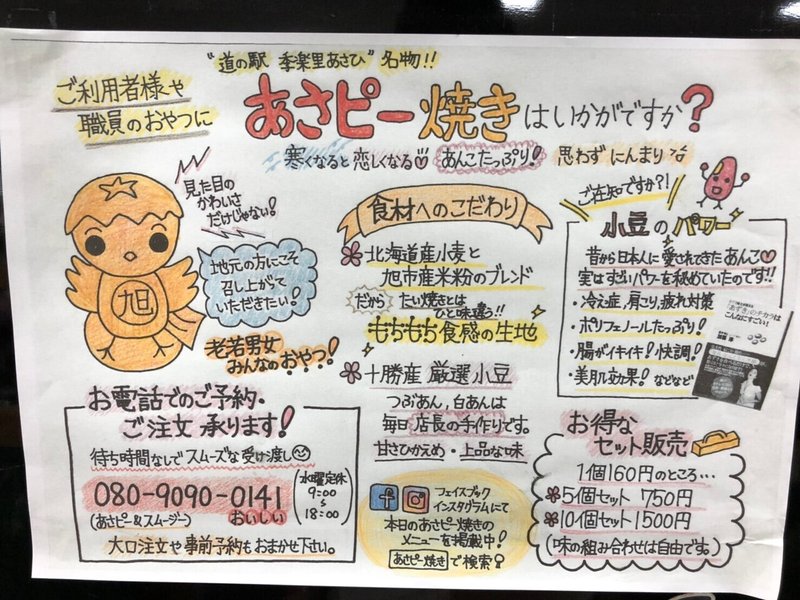 "道の駅 季楽里あさひ" 名物!!
ご利用者様や
職員のおやつに
あさピー焼きはいかがですか?
寒くなると恋しくなる♡ あんこたっぷり! 思わずにんまり
見た目の
かわいさ
だけじゃない!
旭
地元の方にこそ
召し上がって
いただきたい!
老若男女
みんなのおやつ!
食材へのこだわり
北海道産小麦と
旭市産米粉のブレンド
だから たい焼きとは
ひと味違う!!
もちもち食感の生地
十勝産 厳選小豆
つぶあん、白あんは
毎日 店長の手作りです。
甘さひかえめ・上品な味
ご存知ですか?!
小豆のパワー
昔から日本人に愛されてきたあんこ♡
実はすごいパワーを秘めていたのです!!
・冷え症、肩こり、疲れ対策
・ポリフェノールたっぷり!
・腸がイキイキ!快調!
・美肌効果! などなど
「あずき」のチカラは
こんなにすごい!
お電話でのご予約・
ご注文 承ります!
待ち時間なしでスムーズな受け渡し
080-9090-0141
(あさピー&スムージー) おいしい
(水曜定休
9:00
~
18:00)
大口注文や事前予約もおまかせ下さい。
フェイスブック
インスタグラムにて
本日のあさピー焼きの
メニューを掲載中!
あさピー焼き で検索
お得な
セット販売
1個160円のところ…
5個セット 750円
10個セット 1500円
(味の組み合わせは自由です。)